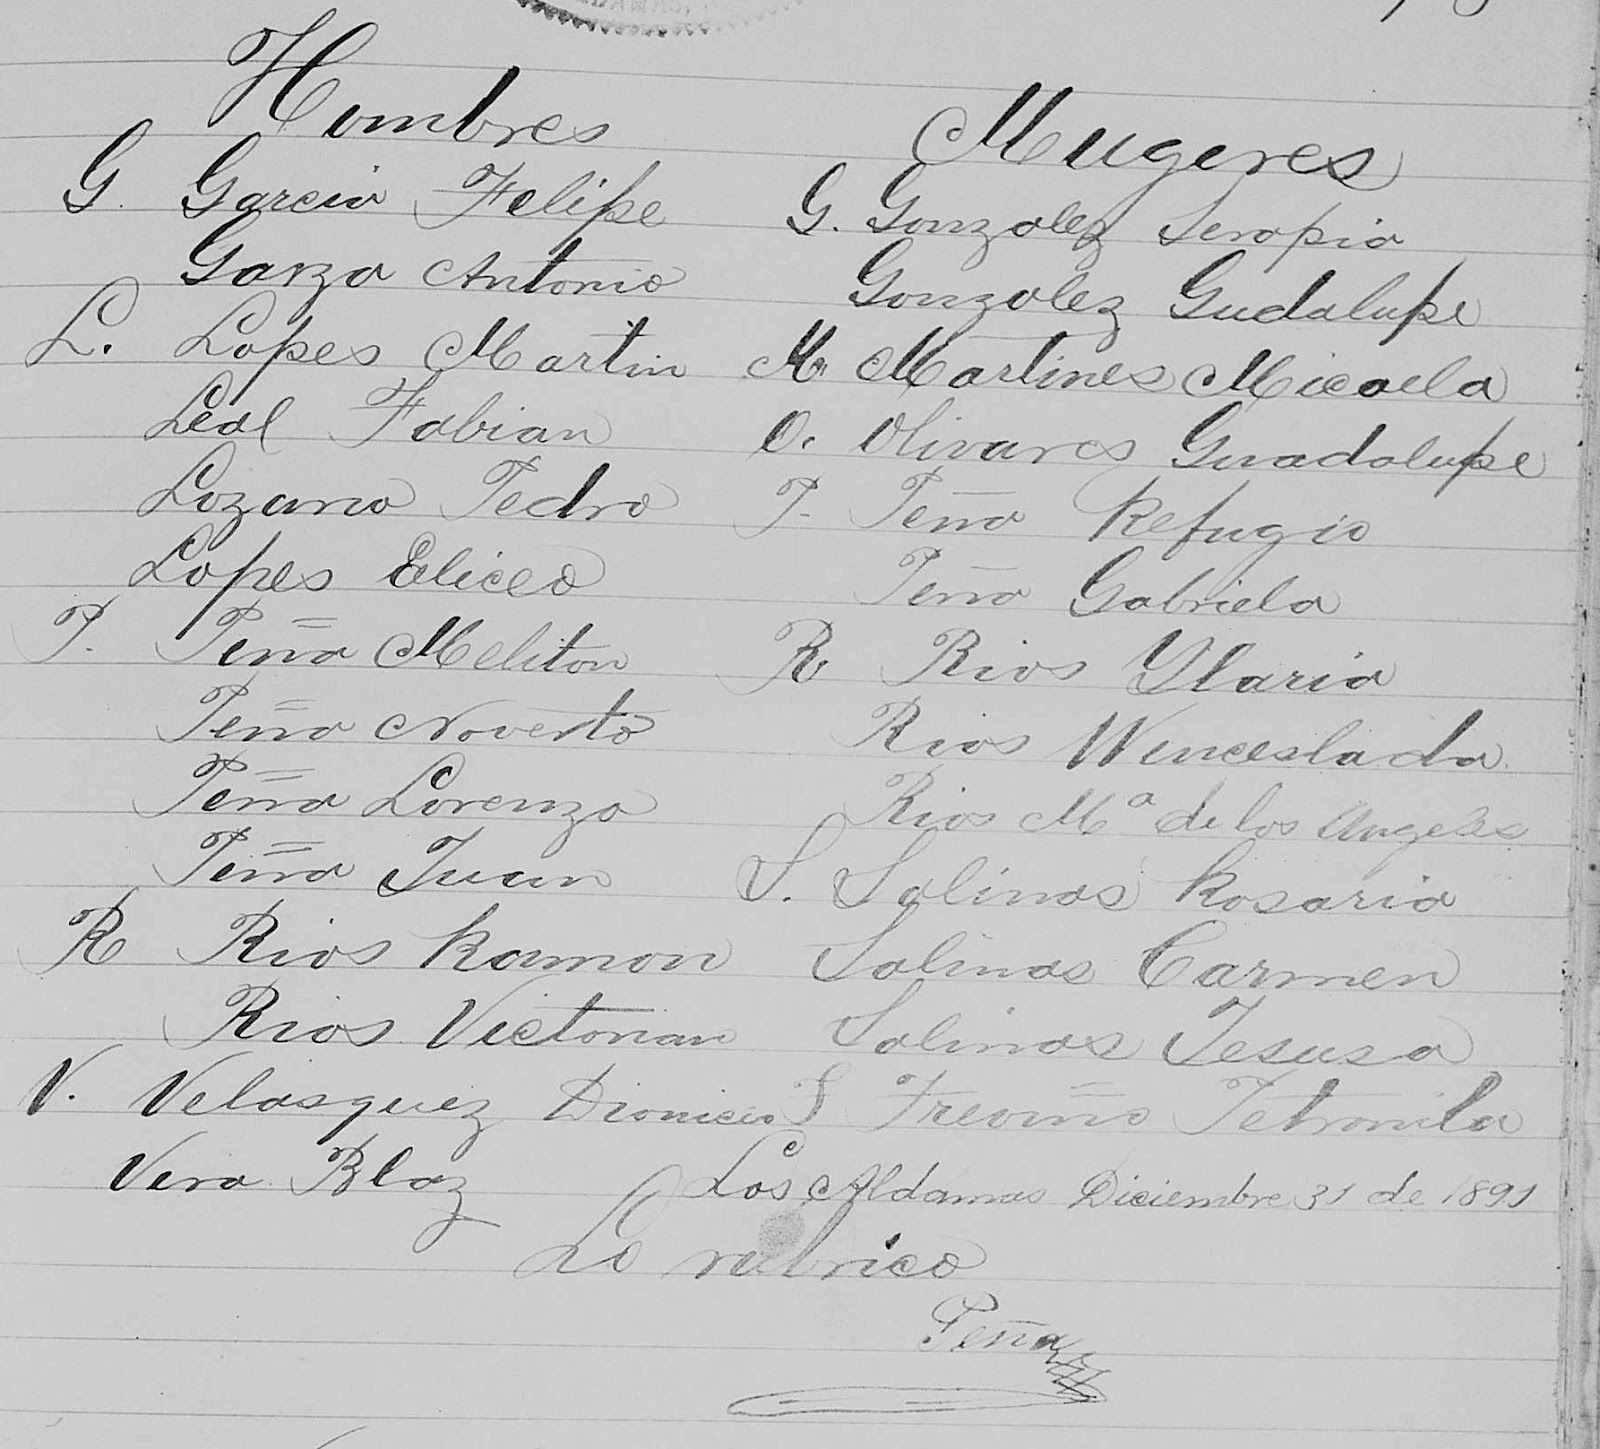 Hombres
G. Garcia Felipe
Garza Antonio
L. Lopes Martin
Leal Fabian
Lozano Pedro
Lopes Eliceo
P. Peña Meliton
Peña Noverto
Peña Lorenzo
Peña Juan
R Rios Ramon
Rios Victorian
V. Velasquez Dionicio
Vera Blaz
Mugeres
G. Gonzalez Serapia
Gonzalez Gudalupe
M. Martines Micaela
O. Olivares Guadalupe
P. Peña Refugio
Peña Gabriela
R Rios Ylaria
Rios Wenceslada
Rios Mª de los Angeles
S. Salinas Rosario
Salinas Carmen
Salinas Jesusa
Treviño Petronila
Los Aldamas Diciembre 31 de 1891
Lo rubrico
Peña